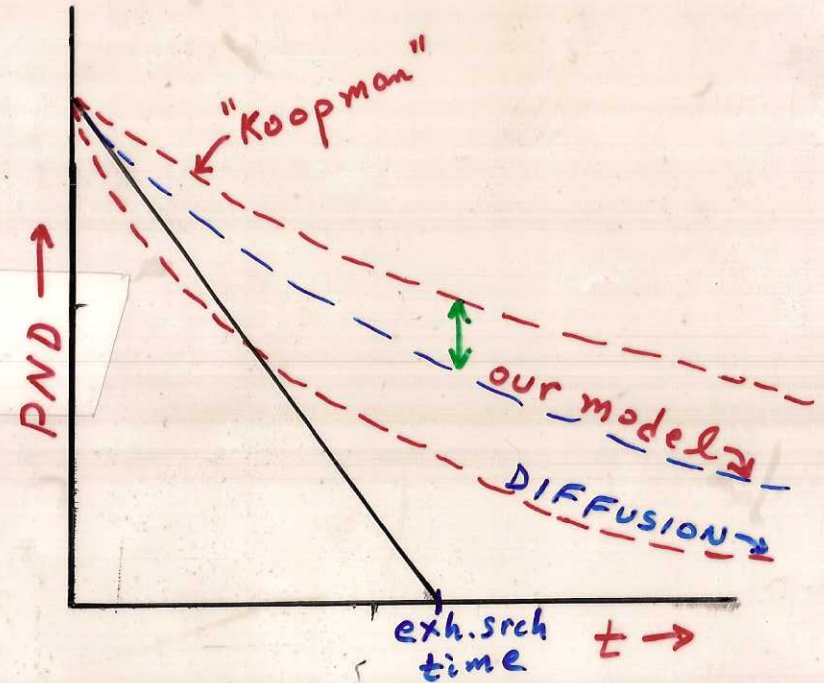 "Koopman"
PND →
our model
DIFFUSION
exh. srch
time
t →